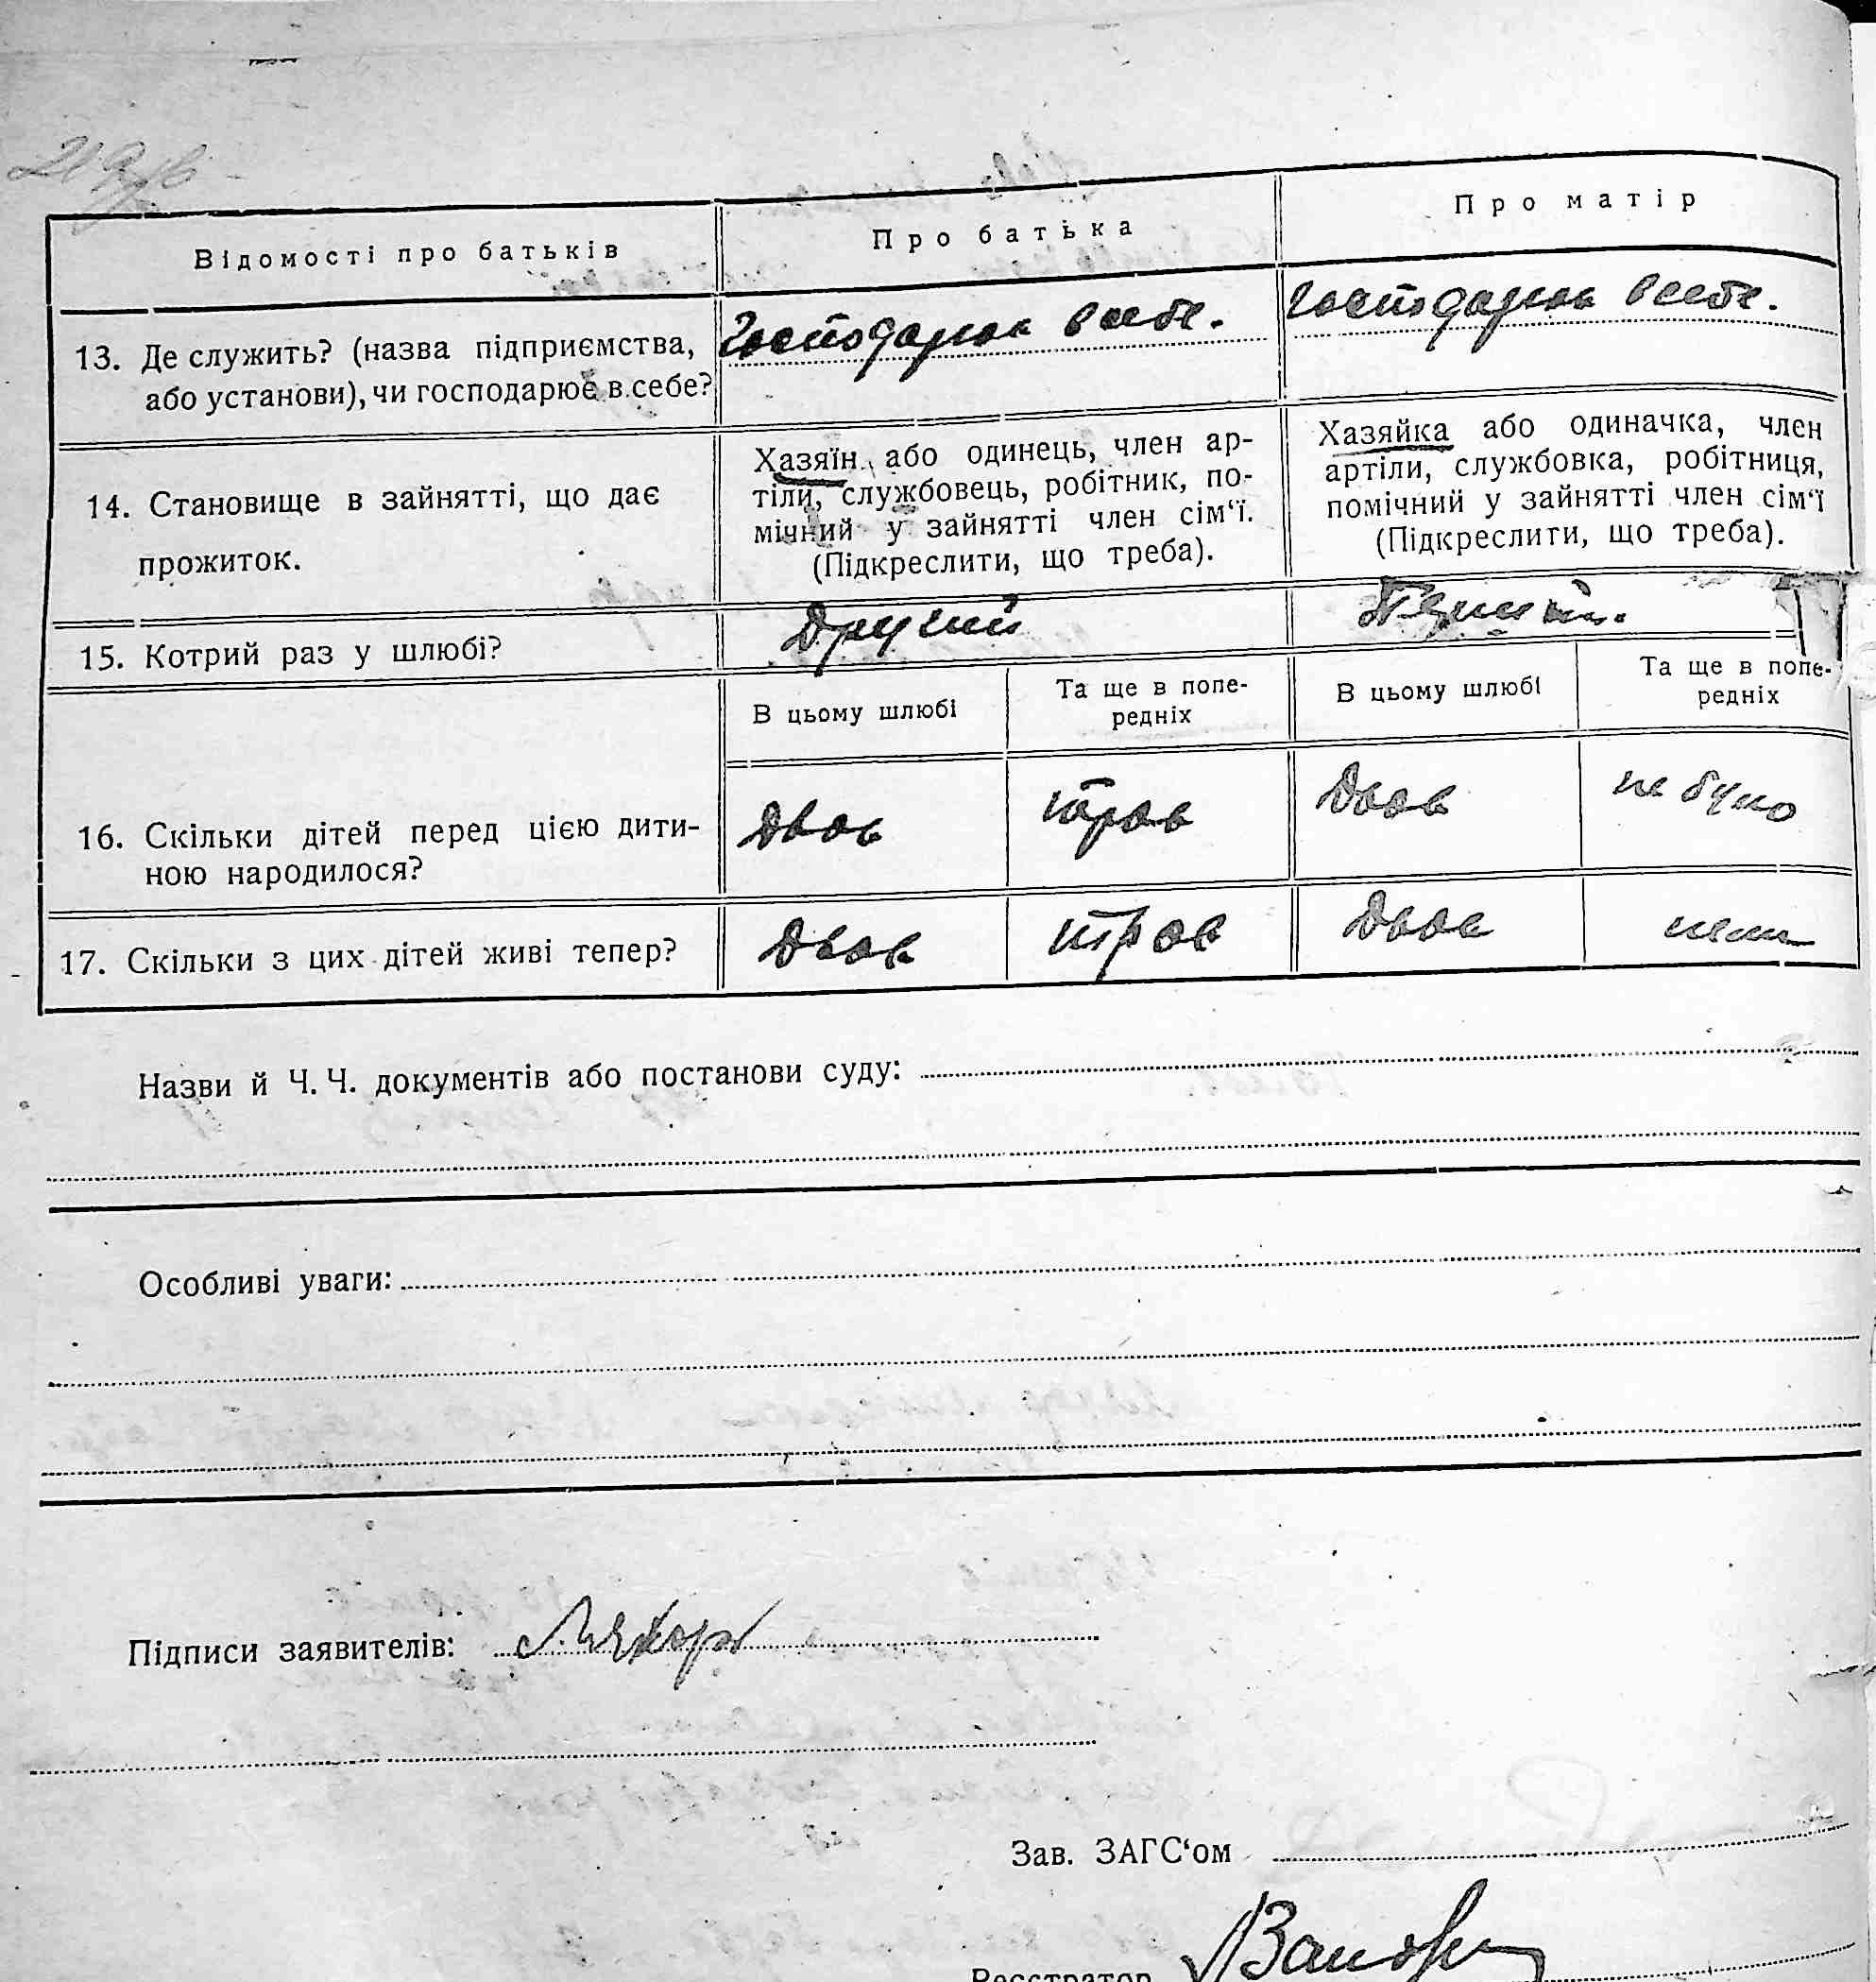 Відомості про батьків
Про батька
Про матір
13. Де служить? (назва підприємства,
або установи), чи господарює в себе?
Господарює в себе.
Господарює в себе.
14. Становище в зайнятті, що дає
прожиток.
Хазяїн, або одинець, член ар-
тіли, службовець, робітник, по-
мічний у зайнятті член сім‘ї.
(Підкреслити, що треба).
Хазяйка або одиначка, член
артіли, службовка, робітниця,
помічний у зайнятті член сім‘ї
(Підкреслити, що треба).
15. Котрий раз у шлюбі?
Другий
В цьому шлюбі
Та ще в попе-
редніх
В цьому шлюбі
Та ще в попе-
редніх
16. Скільки дітей перед цією дити-
ною народилося?
двоє
троє
двоє
не було
17. Скільки з цих дітей живі тепер?
двоє
троє
двоє
нема
Назви й Ч. Ч. документів або постанови суду:
Особливі уваги:
Підписи заявителів:
Зав. ЗАГС‘ом
Реєстратор